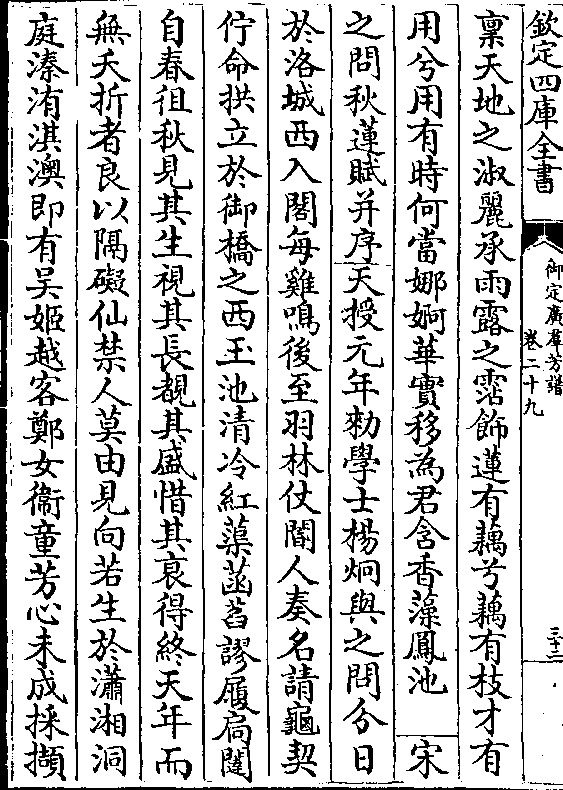 欽定四庫全書
御定廣羣芳譜
卷二十九
三十二
稟天地之淑麗承雨露之霑飾蓮有藕兮藕有枝才有
用兮用有時何當娜婀華實移為君含香藻鳳池
宋
之問秋蓮賦并序天授元年勑學士楊炯與之問分日
於洛城西入閣每雞鳴後至羽林仗閽人奏名請龜契
佇命拱立於御橋之西玉池清冷紅蕖菡萏謬履扃闥
自春徂秋見其生視其長覩其盛惜其衰得終天年而
無夭折者良以隔礙仙禁人莫由見向若生於瀟湘洞
庭溱洧淇澳即有吴姬越客鄭女衞童芳心未成採擷